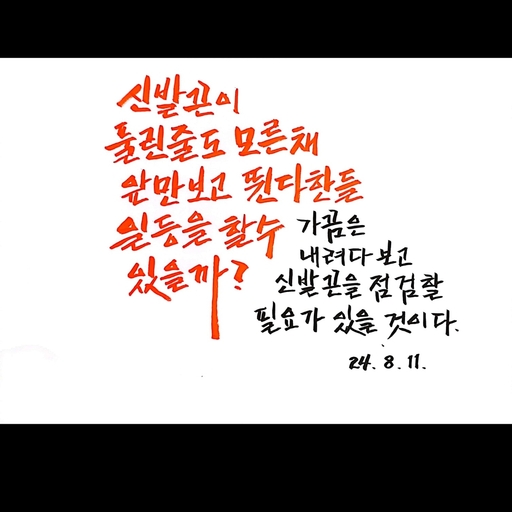 신발끈이
풀린줄도 모른채
앞만보고 뛴다한들
일등을 할수
있을까?
가끔은
내려다보고
신발끈을 점검할
필요가 있을 것이다.
24. 8. 11.